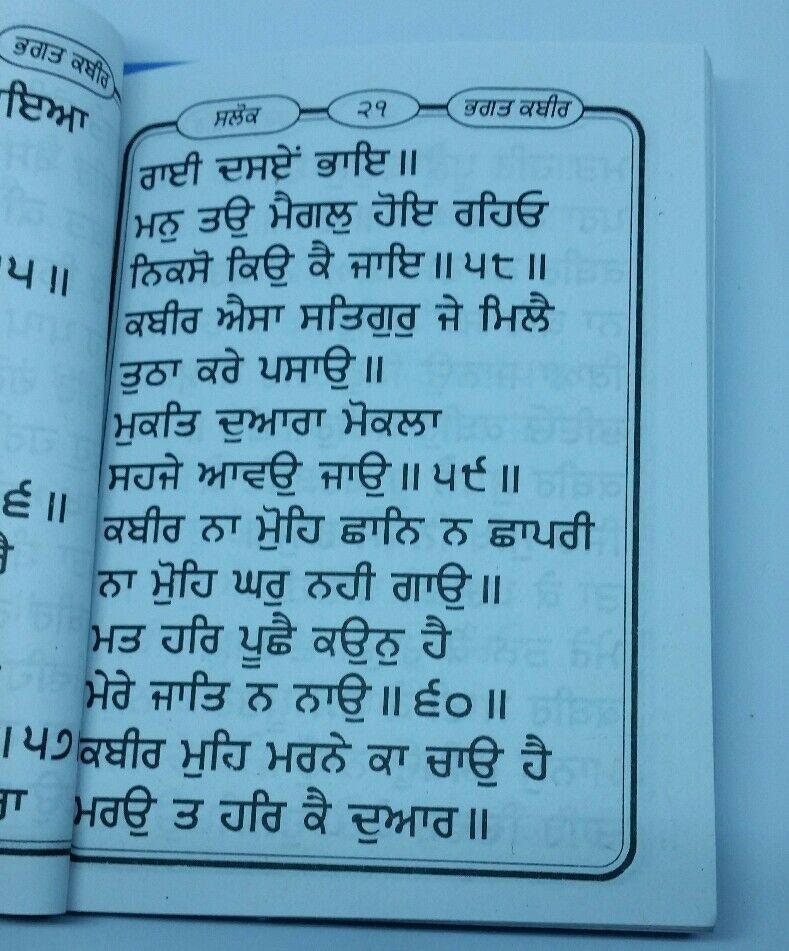 ਭਗਤ ਕਬੀਰ
ਇਆ
੫॥
੬॥
।੫੭
ਸਲੋਕ ੨੧ ਭਗਤ ਕਬੀਰ
ਰਾਈ ਦਸਏਂ ਭਾਇ॥
ਮਨੁ ਤਉ ਮੈਗਲੁ ਹੋਇ ਰਹਿਓ
ਨਿਕਸੋ ਕਿਉ ਕੈ ਜਾਇ॥੫੮॥
ਕਬੀਰ ਐਸਾ ਸਤਿਗੁਰੁ ਜੇ ਮਿਲੈ
ਤੁਠਾ ਕਰੇ ਪਸਾਉ॥
ਮੁਕਤਿ ਦੁਆਰਾ ਮੋਕਲਾ
ਸਹਜੇ ਆਵਉ ਜਾਉ॥੫੯॥
ਕਬੀਰ ਨਾ ਮੁੋਹਿ ਛਾਨਿ ਨ ਛਾਪਰੀ
ਨਾ ਮੁੋਹਿ ਘਰੁ ਨਹੀ ਗਾਉ॥
ਮਤ ਹਰਿ ਪੂਛੈ ਕਉਨੁ ਹੈ
ਮੇਰੇ ਜਾਤਿ ਨ ਨਾਉ॥੬੦॥
ਕਬੀਰ ਮੁਹਿ ਮਰਨੇ ਕਾ ਚਾਉ ਹੈ
ਮਰਉ ਤ ਹਰਿ ਕੈ ਦੁਆਰ॥